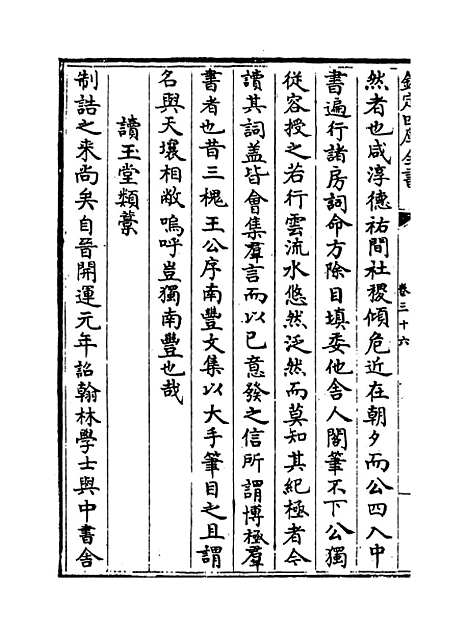 欽定四庫全書
卷三十六
然者也咸淳德祐間社稷傾危近在朝夕而公四入中
書遍行諸房詞命方除目填委他舍人閣筆不下公獨
從容授之若行雲流水悠然泛然而莫知其紀極者今
讀其詞盖皆會集羣言而以已意發之信所謂博極羣
書者也昔三槐王公序南豐文集以大手筆目之且謂
名與天壤相敝嗚呼豈獨南豐也哉
讀玉堂類藁
制誥之来尚矣自晉開運元年詔翰林學士與中書舎